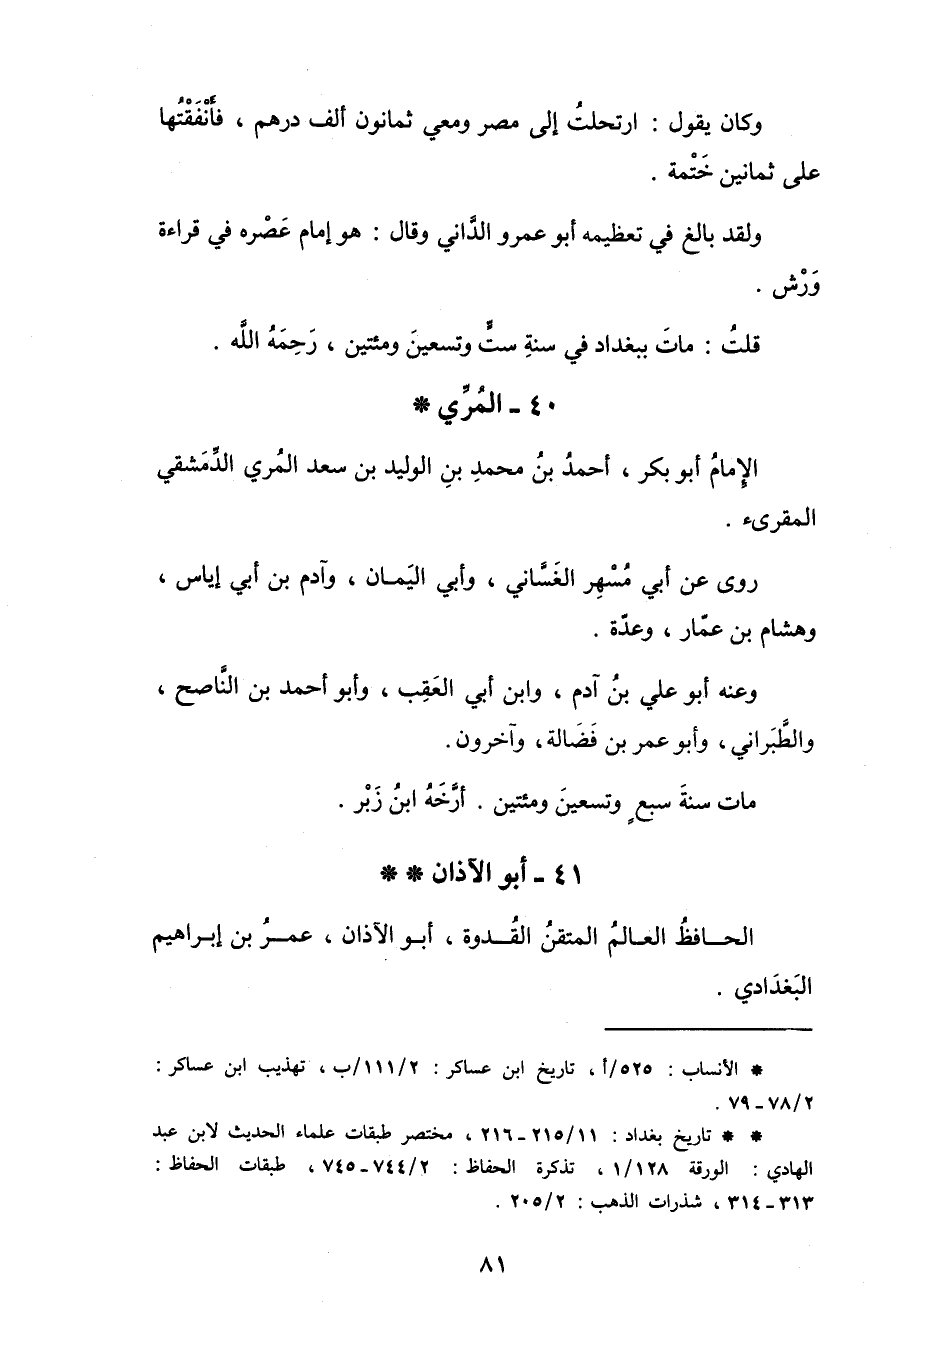 وكان يقول : ارتحلتُ إلى مصر ومعي ثمانون ألف درهم ، فأَنْفَقْتُها
على ثمانين خَتْمة .
ولقد بالغ في تعظيمه أبو عمرو الدَّاني وقال : هو إمام عَصْره في قراءة
وَرْش .
قلتُ : ماتَ ببغداد في سنةِ ستٍّ وتسعينَ ومئتين ، رَحِمَهُ اللَّه .
٤٠ ـ المُرِّي *
الإِمامُ أبو بكر ، أحمدُ بنُ محمدِ بنِ الوليد بن سعد المُري الدِّمَشقي
المقرىء .
روى عن أبي مُسْهِر الغَسَّاني ، وأبي اليَمان ، وآدم بن أبي إياس ،
وهشام بن عمّار ، وعدّة .
وعنه أبو علي بنُ آدم ، وابن أبي العَقِب ، وأبو أحمد بن النَّاصح ،
والطَّبَراني ، وأبو عمر بن فَضَالة ، وآخرون .
مات سنةَ سبعٍ وتسعينَ ومئتين . أرَّخَهُ ابنُ زَبْر .
٤١ ـ أبو الآذان * *
الحافظُ العالمُ المتقنُ القُدوة ، أبو الآذان ، عمرُ بن إبراهيم
البَغدَادي .
* الأنساب : ٥٢٥/أ ، تاريخ ابن عساكر : ١١١/٢/ب ، تهذيب ابن عساكر :
٧٨/٢ ـ ٧٩ .
* * تاريخ بغداد : ٢١٥/١١ ـ ٢١٦ ، مختصر طبقات علماء الحديث لابن عبد
الهادي : الورقة ١/١٢٨ ، تذكرة الحفاظ : ٧٤٤/٢ ـ ٧٤٥ ، طبقات الحفاظ :
٣١٣ ـ ٣١٤ ، شذرات الذهب : ٢٠٥/٢ .
٨١